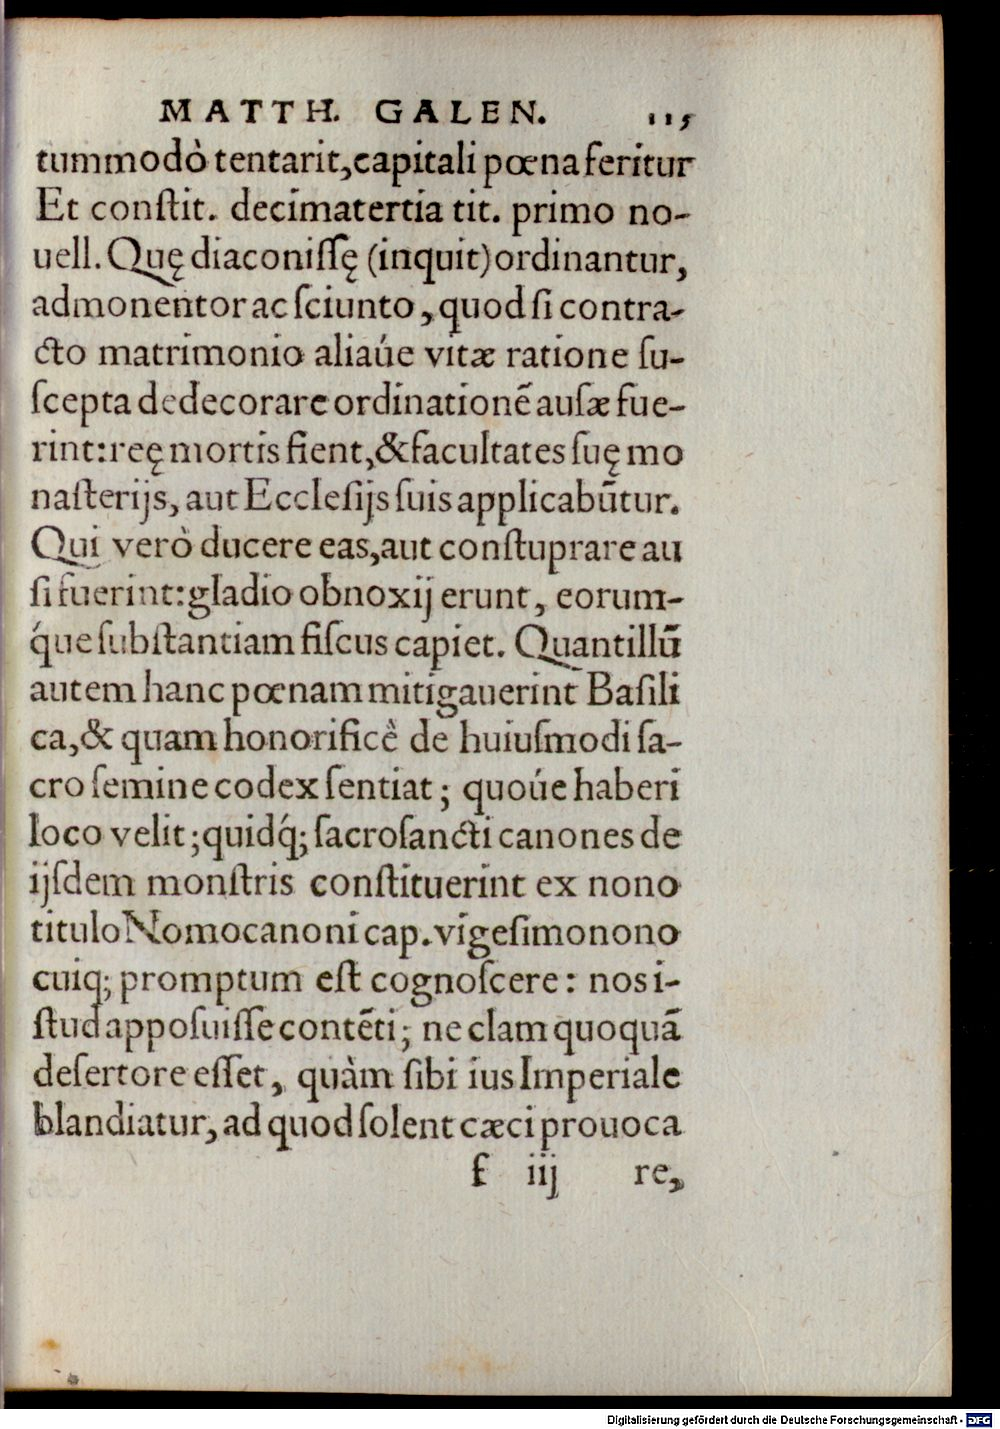 MATTH. GALEN. 115
tummodò tentarit, capitali pœna feritur
Et conſtit. decimatertia tit. primo no-
uell. Quę diaconiſſę (inquit) ordinantur,
admonentor ac ſciunto, quod ſi contra-
cto matrimonio aliaúe vitæ ratione ſu-
ſcepta dedecorare ordinationẽ auſæ fue-
rint: reę mortis fient, & facultates ſuę mo
naſterijs, aut Eccleſijs ſuis applicabũtur.
Qui verò ducere eas, aut conſtuprare au
ſi fuerint: gladio obnoxij erunt, eorum-
q́ue ſubſtantiam fiſcus capiet. Quantillũ
autem hanc pœnam mitigauerint Baſili
ca, & quam honorificè de huiuſmodi ſa-
cro ſemine codex ſentiat; quoúe haberi
loco velit; quidq́; ſacroſancti canones de
ijſdem monſtris conſtituerint ex nono
titulo Nomocanoni cap. vigeſimonono
cuiq; promptum eſt cognoſcere: nos i-
ſtud appoſuiſſe contẽti; ne clam quoquã
deſertore eſſet, quàm ſibi ius Imperiale
blandiatur, ad quod ſolent cæci prouoca
f iij re,
Digitalisierung gefördert durch die Deutsche Forschungsgemeinschaft - DFG